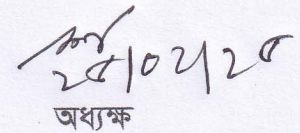 ২৫/০২/২৫
অধ্যক্ষ